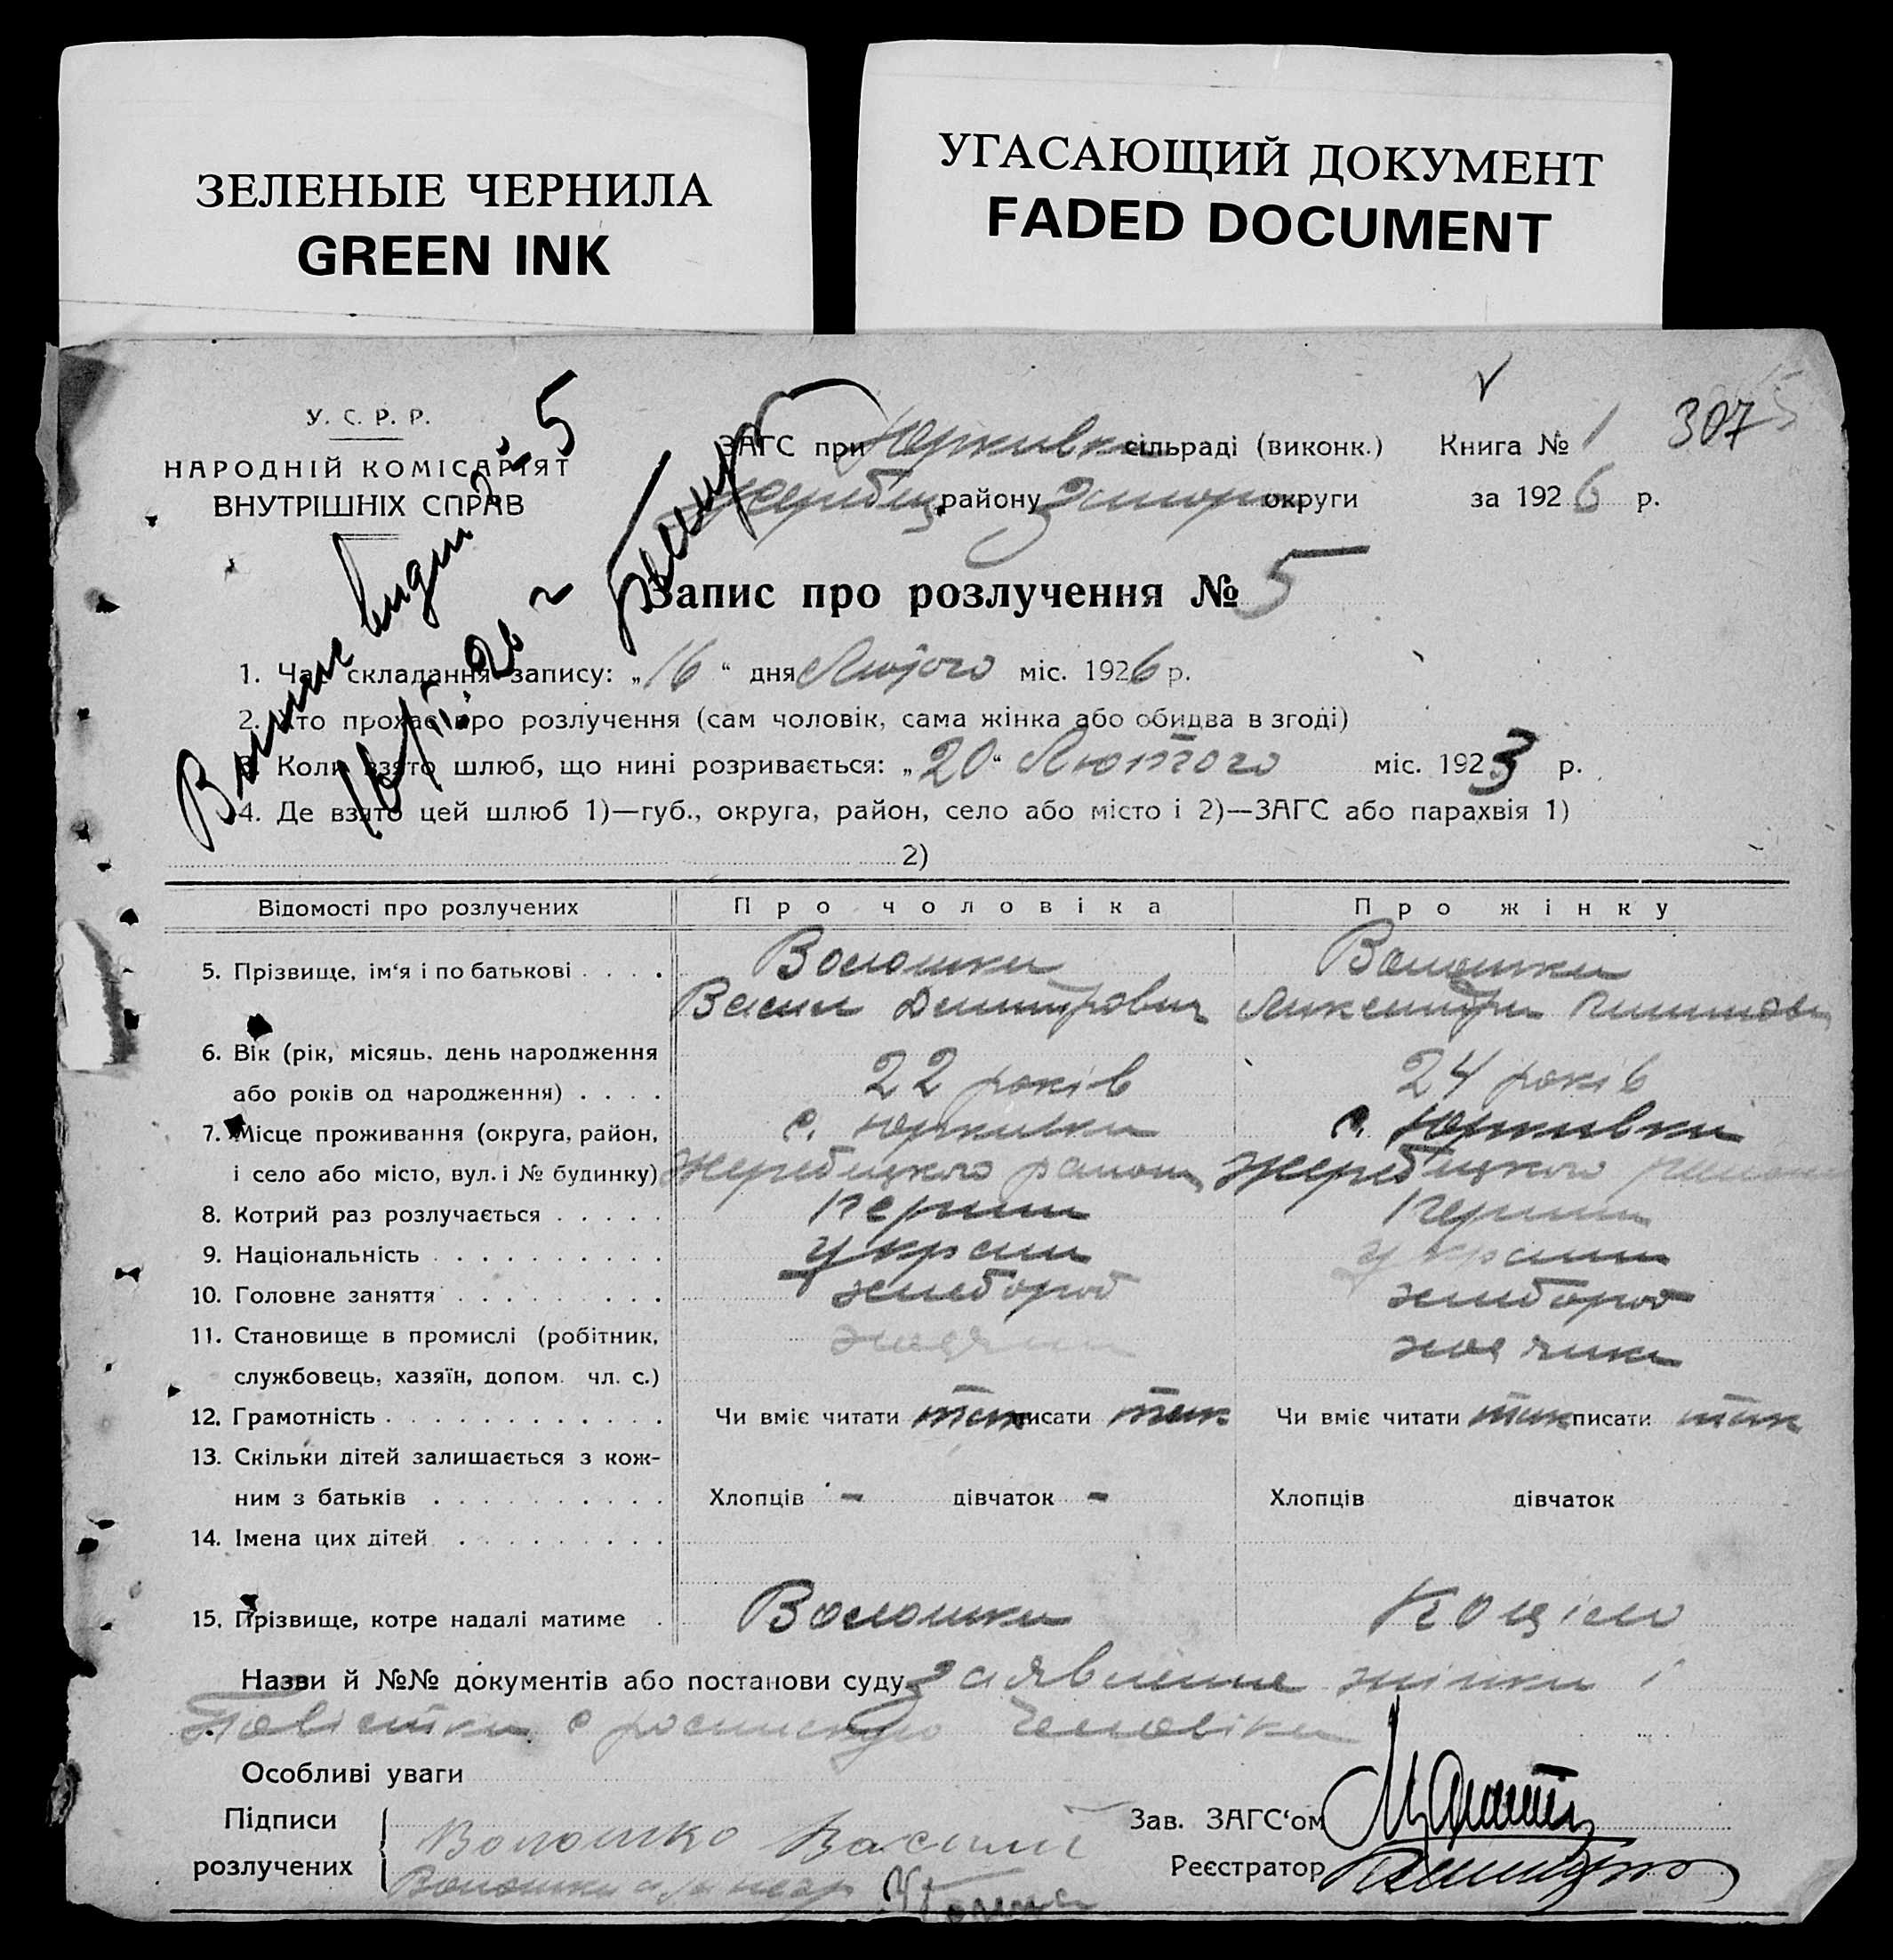 ЗЕЛЕНЫЕ ЧЕРНИЛА
GREEN INK
УГАСАЮЩИЙ ДОКУМЕНТ
FADED DOCUMENT
У. С. Р. Р.
НАРОДНІЙ КОМІСАРІЯТ
ВНУТРІШНІХ СПРАВ
ЗАГС при Юрківка сільраді (виконк.) Книга № 1 307
району округи за 1926 р.
Запис про розлучення № 5
1. Час складання запису: „16“ дня Лютого міс. 1926 р.
2. Хто прохає про розлучення (сам чоловік, сама жінка або обидва в згоді)
3. Коли взято шлюб, що нині розривається: „20“ Лютого міс. 1923 р.
4. Де взято цей шлюб 1)—губ., округа, район, село або місто і 2)—ЗАГС або парахвія 1)
2)
Відомості про розлучених Про чоловіка Про жінку
5. Прізвище, ім‘я і по батькові . . . . Волошка Волошка
Васил Дмитрович
6. Вік (рік, місяць, день народження
або років од народження) . . . . 22 років 24 років
7. Місце проживання (округа, район, с. Юрківка с. Юрківка
і село або місто, вул. і № будинку) Жеребицкого району Жеребицкого району
8. Котрий раз розлучається . . . . . Перший Перший
9. Національність . . . . . . . . . . україн україн
10. Головне заняття . . . . . . . . . хлебороб хлебороб
11. Становище в промислі (робітник,
службовець, хазяїн, допом. чл. с.)
12. Грамотність . . . . . . . . . . . . Чи вміє читати так писати так Чи вміє читати так писати так
13. Скільки дітей залишається з кож-
ним з батьків . . . . . . . . . . Хлопців - дівчаток - Хлопців дівчаток
14. Імена цих дітей . . . . . . . . .
15. Прізвище, котре надалі матиме . Волошка
Назви й №№ документів або постанови суду заявление жінки і
Повістка с роспискую Чоловіка
Особливі уваги
Підписи Волошко Василь Зав. ЗАГС‘ом
розлучених Реєстратор